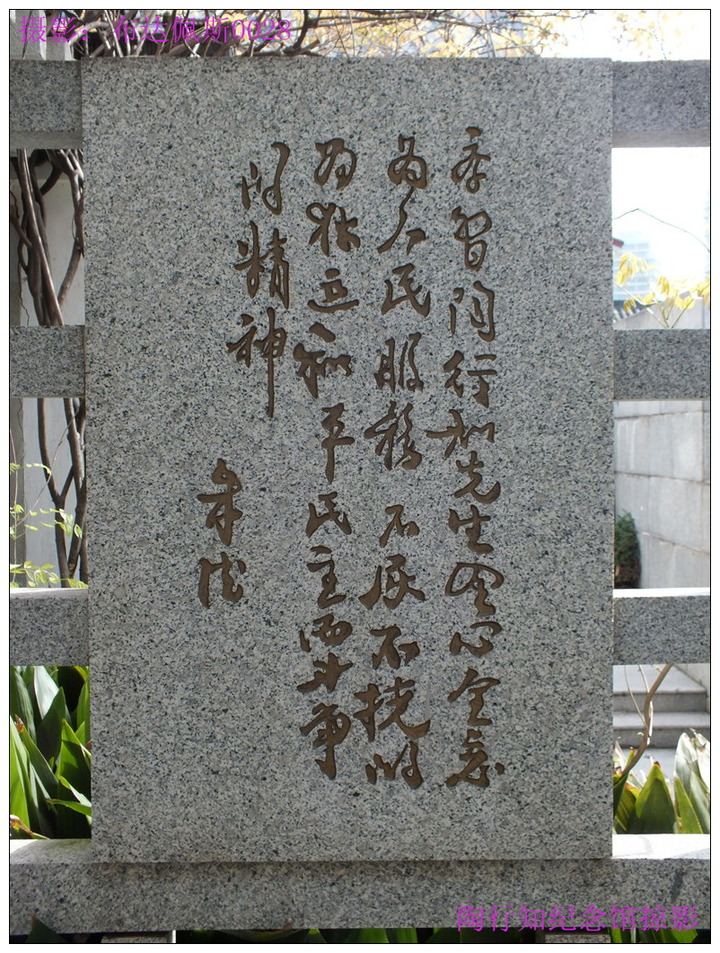 摄影：布达佩斯0028
学习陶行知先生全心全意
为人民服务不屈不挠的
为独立和平民主而斗争
的精神
朱德
陶行知纪念馆掠影